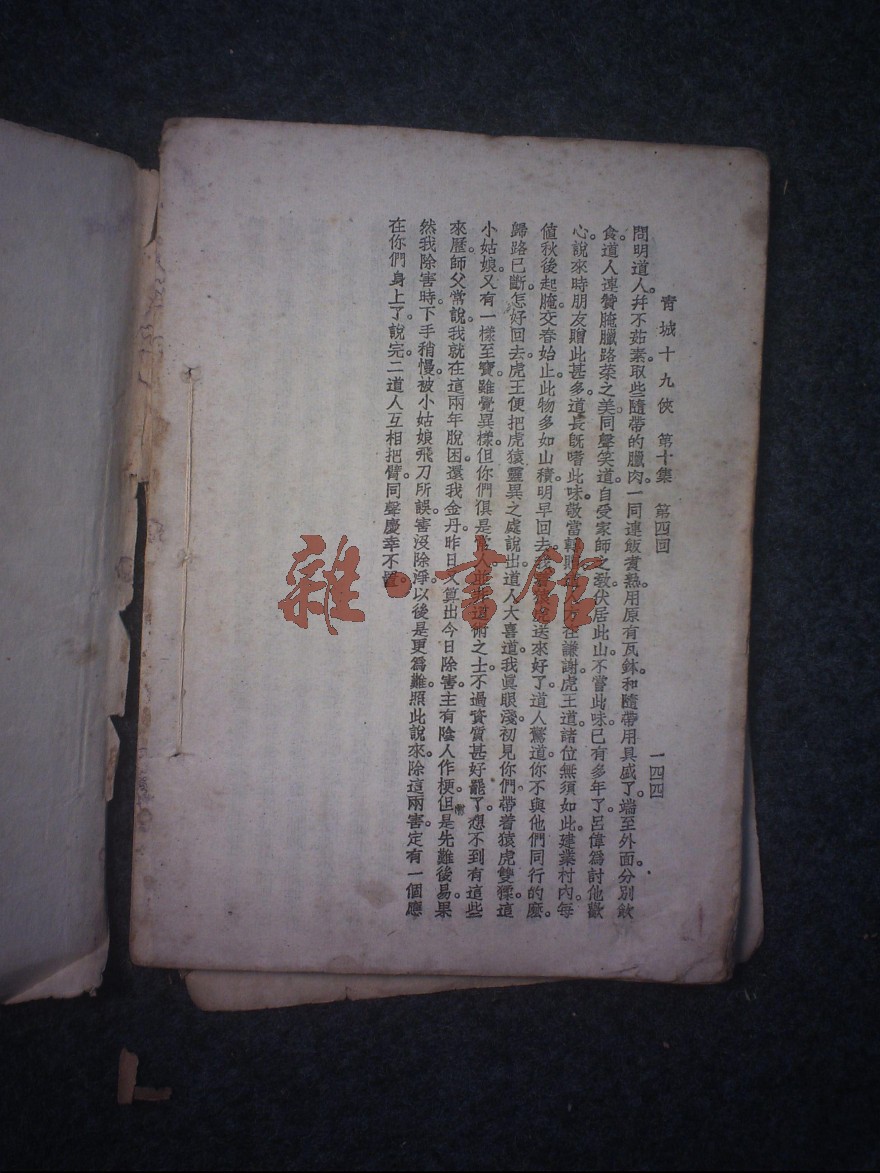 青城十九俠 第十集 第四回 一四四
問明道人幷不茹素。取些隨帶的臘肉。一同連飯煮熟。用原有瓦鉢和隨帶用具盛了。端至外面分別飲
食。道人連贊腌臘路菜之美。同聲笑道。自受家師之敎。伏居此山。不嘗此味。已有多年了。呂偉爲討他歡
心。說來時朋友贈此甚多。道長旣嗜此味。敬當轉贈。方在謙謝。虎王道。諸位無須如此。建業村內。每
値秋後起腌。交春始止。此物多如山積。明早回去。送來好了。道人驚道。你不與他們同行的麼。
歸路已斷。怎好回去。虎王便把虎猿靈異之處說出。道人大喜道。我眞眼淺。初見你們。帶着猿虎雙猱。這
小姑娘。又有一樣至寶。雖覺異樣。但你們俱是常人。並非道術之士。不過資質甚好罷了。想不到有這些
來歷。師父常說。我就在這兩年脫困。還我金丹。昨日又算出今日除害。主有陰人作梗。但是先難後易。果
然我除害時。下手稍慢。被小姑娘飛刀所誤。害沒除淨。以後是更爲難。照此說來。除這兩害。定有一個應
在你們身上了。說完。二道人互相把臂。同聲慶幸不置。
雜·書館